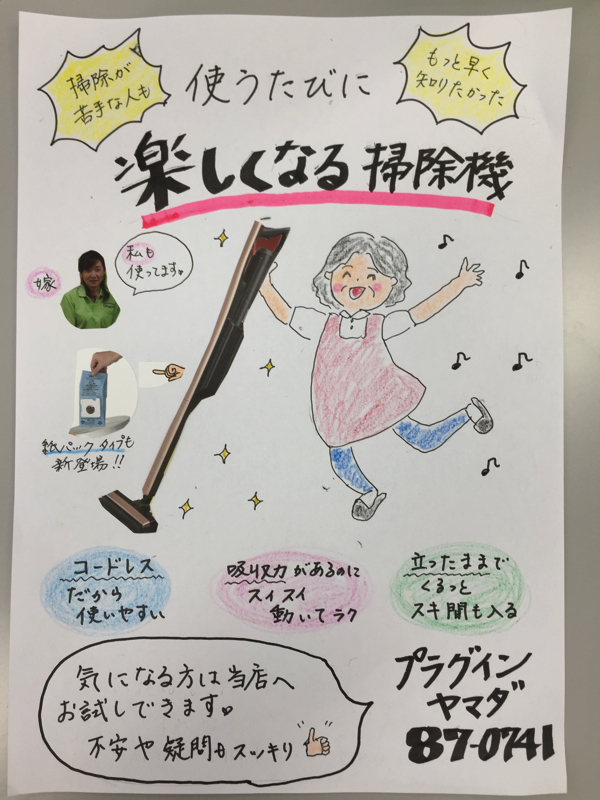 掃除が
苦手な人も
使うたびに
もっと早く
知りたかった
楽しくなる掃除機
嫁
私も
使ってます。
紙パックタイプも
新登場!!
コードレス
だから
使いやすい
吸収力があるのに
スイスイ
動いてラク
立ったままで
くるっと
スキ間も入る
気になる方は当店へ
お試しできます。
不安や疑問もスッキリ
プラグイン
ヤマダ
87-0741